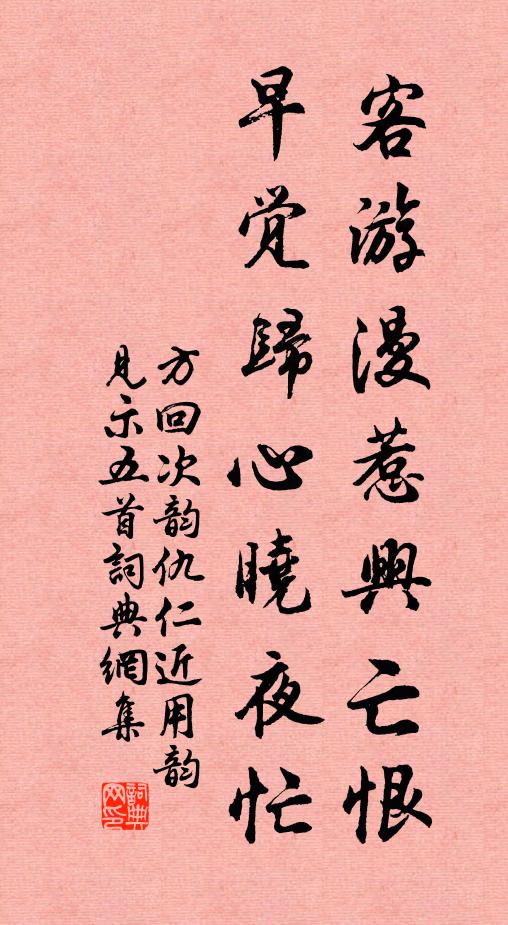 客游漫惹興亡恨
早觉歸心曉夜忙
方回次韵仇仁近用韵
見示五首詞典網集
詞典
网印